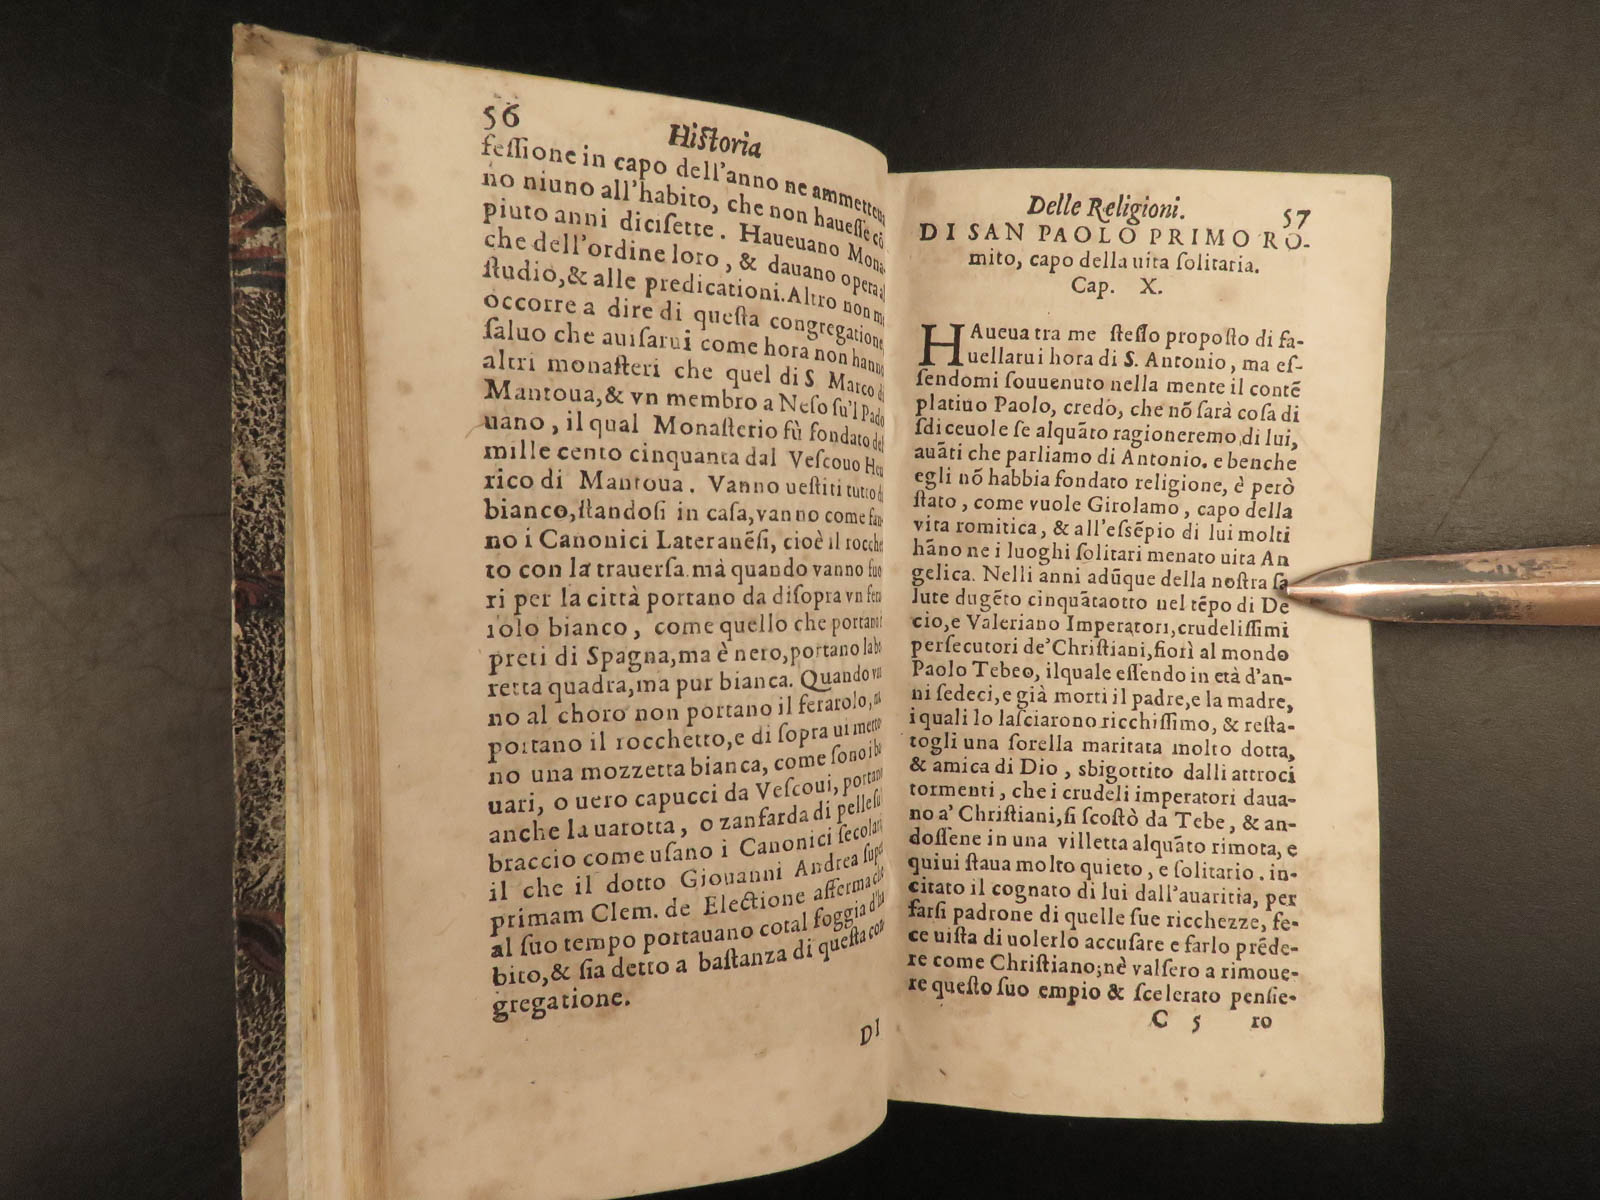 56
Hiſtoria
feſſione in capo dell'anno ne ammetteua
no niuno all'habito, che non haueſſe cō
piuto anni diciſette. Haueuano Mona
che dell'ordine loro, & dauano opera al
ſtudio, & alle predicationi. Altro non m
occorre a dire di queſta congregatione,
ſaluo che auiſarui come hora non hanno
altri monaſteri che quel di S. Marco di
Mantoua, & vn membro a Neſo ſu'l Pado
uano, il qual Monaſterio fù fondato del
mille cento cinquanta dal Veſcouo Hen
rico di Mantoua. Vanno ueſtiti tutto di
bianco, ſtandoſi in caſa, vanno come fan
no i Canonici Lateranēſi, cioè il rocchet
to con la trauerſa. mà quando vanno fuo
ri per la città portano da diſopra vn fera
iolo bianco, come quello che portano i
preti di Spagna, ma è nero, portano la be
retta quadra, ma pur bianca. Quando van
no al choro non portano il ferarolo, ma
portano il rocchetto, e di ſopra ui metto
no una mozzetta bianca, come ſono i ba
uari, o uero capucci da Veſcoui, portano
anche la uarotta, o zanfarda di pelle ſul
braccio come uſano i Canonici ſecolari
il che il dotto Giouanni Andrea ſuper
primam Clem. de Electione afferma che
al ſuo tempo portauano cotal foggia d'ha
bito, & ſia detto a baſtanza di queſta con
gregatione.
DI
Delle Religioni.
57
DI SAN PAOLO PRIMO RO-
mito, capo della uita ſolitaria.
Cap. X.
HAueua tra me ſteſſo propoſto di fa-
uellarui hora di S. Antonio, ma eſ-
ſendomi ſouuenuto nella mente il contē
platiuo Paolo, credo, che nō ſarà coſa di
ſdiceuole ſe alquāto ragioneremo di lui,
auāti che parliamo di Antonio. e benche
egli nō habbia fondato religione, è però
ſtato, come vuole Girolamo, capo della
vita romitica, & all'eſsēpio di lui molti
hāno ne i luoghi ſolitari menato uita An
gelica. Nelli anni adūque della noſtra ſa
lute dugēto cinquātaotto nel tēpo di De
cio, e Valeriano Imperatori, crudeliſſimi
perſecutori de' Chriſtiani, fiorì al mondo
Paolo Tebeo, ilquale eſſendo in età d'an-
ni ſedeci, e già morti il padre, e la madre,
i quali lo laſciarono ricchiſſimo, & reſta-
togli una ſorella maritata molto dotta,
& amica di Dio, sbigottito dalli attroci
tormenti, che i crudeli imperatori daua-
no a' Chriſtiani, ſi ſcoſtò da Tebe, & an-
doſſene in una villetta alquāto rimota, e
quiui ſtaua molto quieto, e ſolitario. in-
citato il cognato di lui dall'auaritia, per
farſi padrone di quelle ſue ricchezze, fe-
ce uiſta di uolerlo accuſare e farlo prēde-
re come Chriſtiano; nè valſero a rimoue-
re queſto ſuo empio & ſcelerato penſie-
C 5 ro